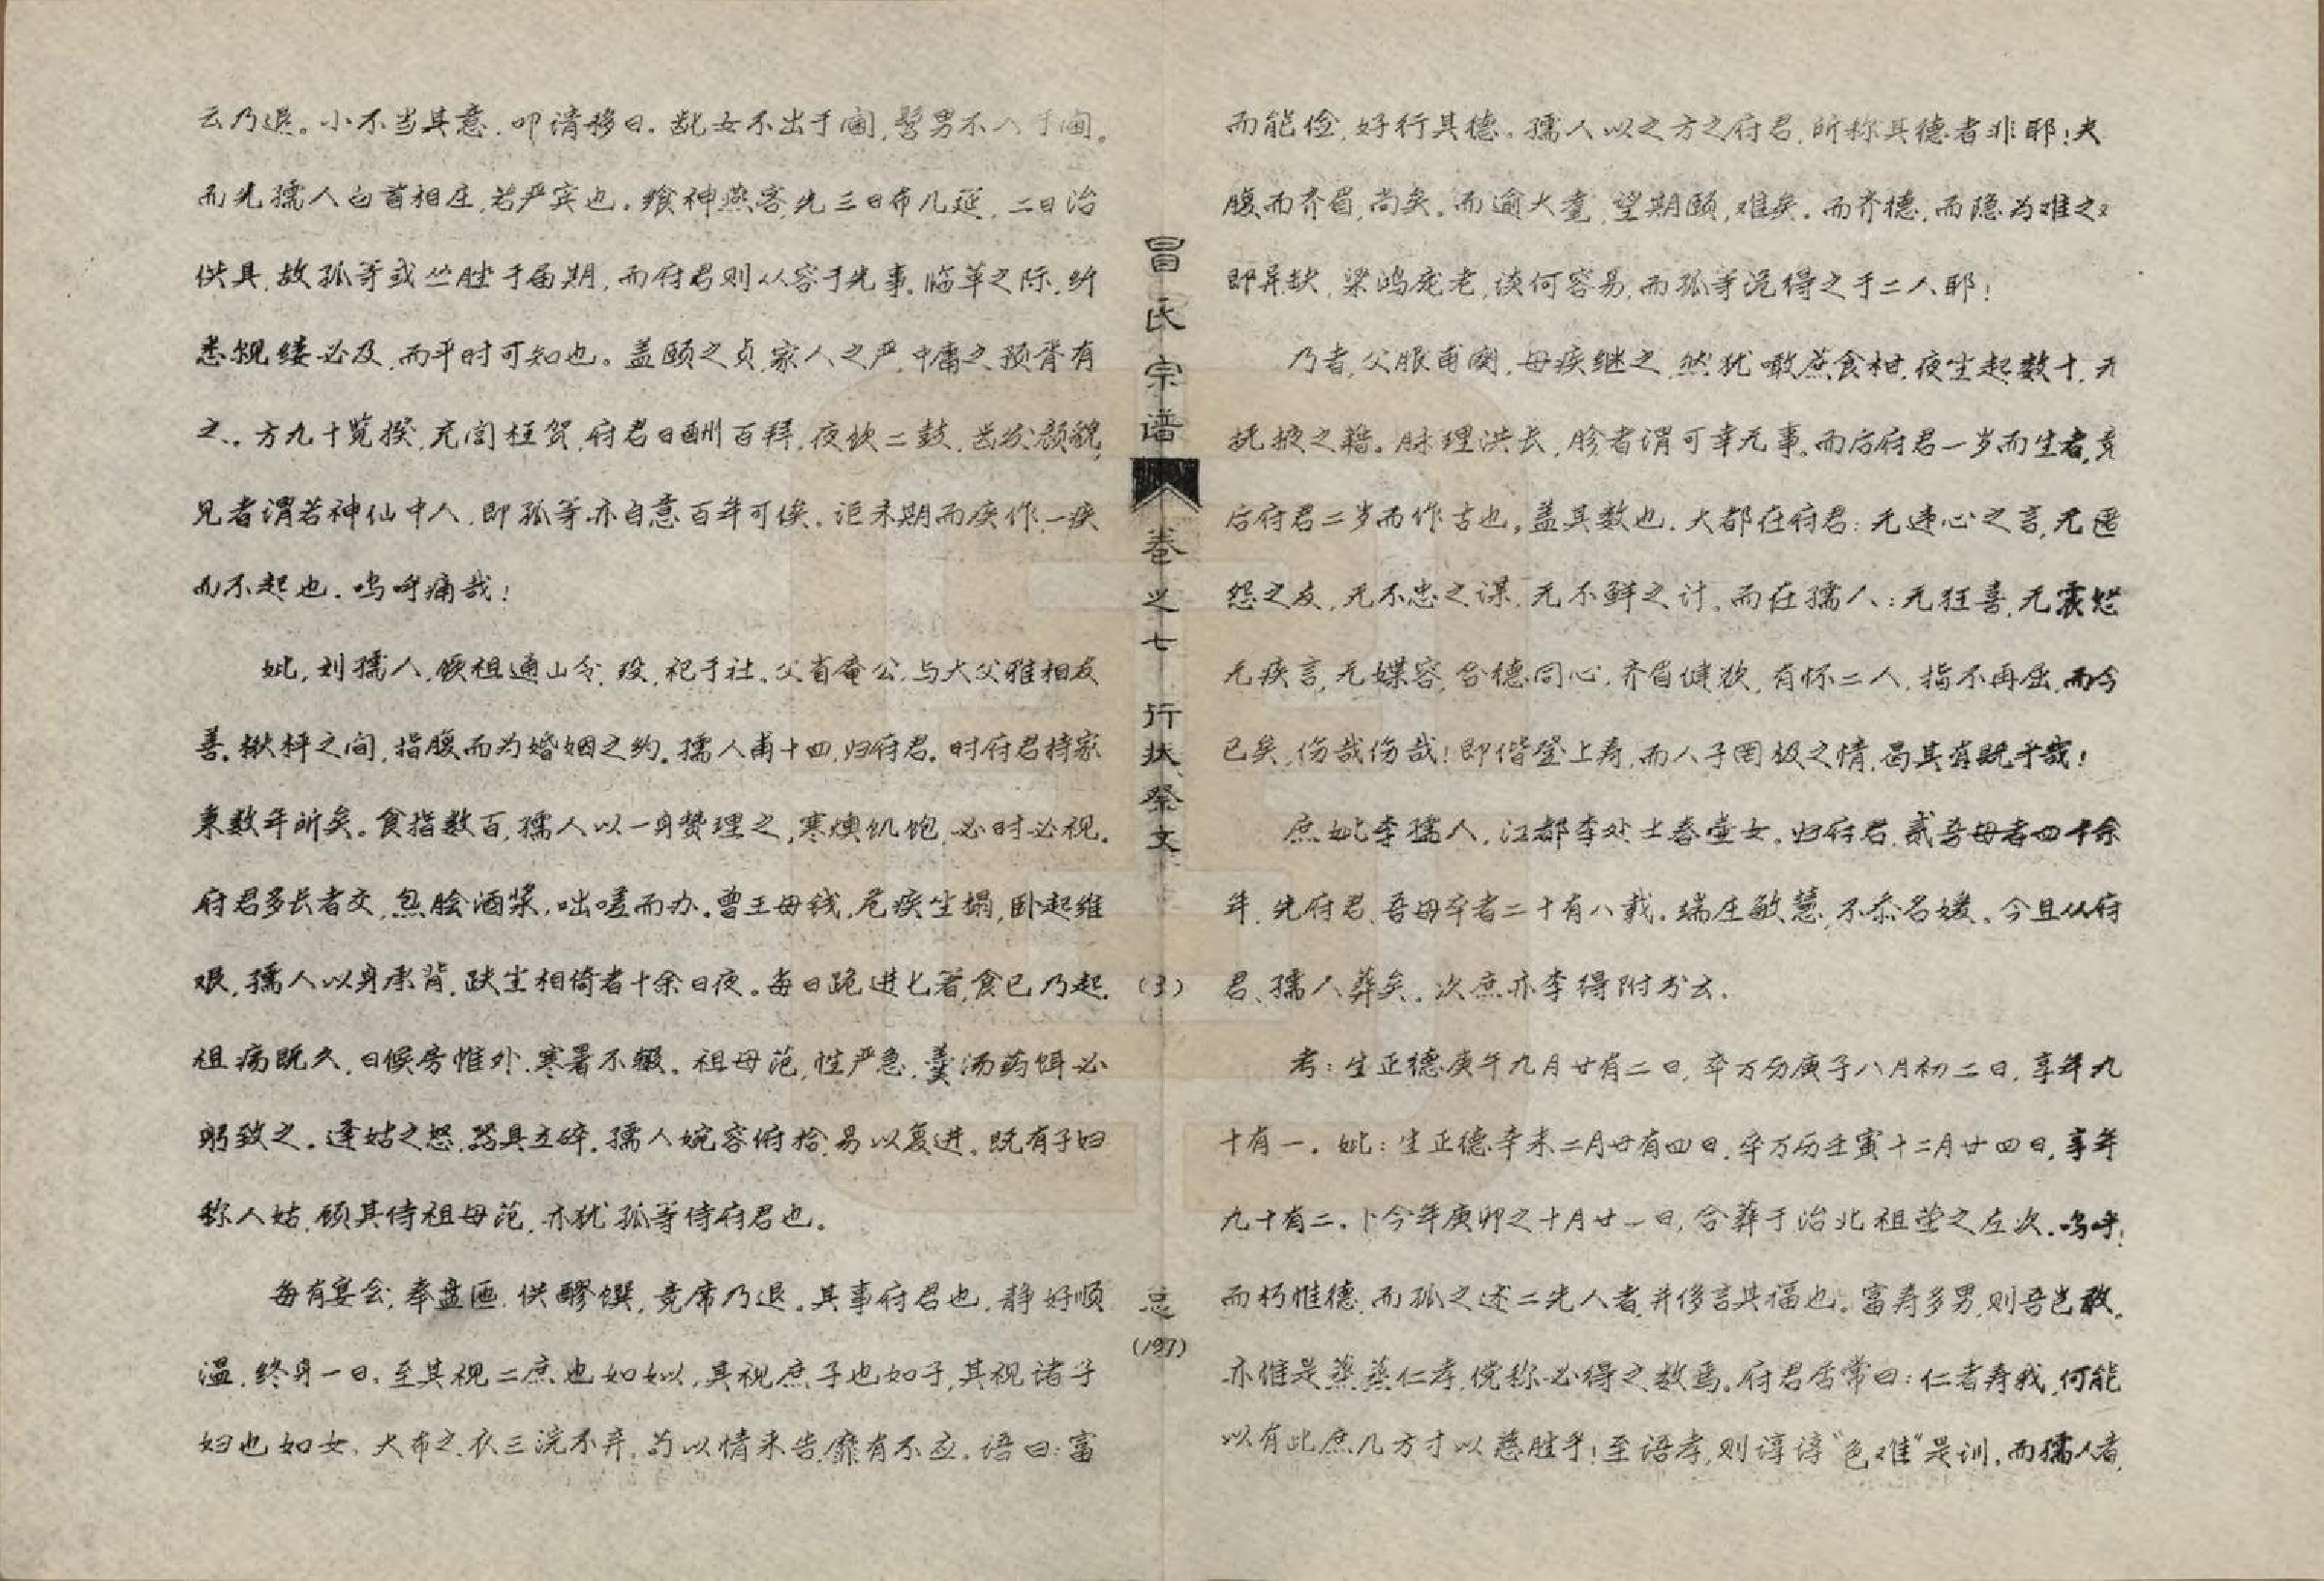 云乃退。小不当其意,叩请移日。龀女不出于阃,髫男不入于阃。
而先孺人白首相庄,若严宾也。飨神燕客,先三日布几筵,二日治
供具,故孤等或丛脞于届期,而府君则从容于先事。临革之际,纤
悉覙缕必及,而平时可知也。盖颐之贞,家人之严,中庸之预胥有
之。方九十览揆,充闾枉贺,府君日酬百拜,夜饮二鼓,齿发颜貌,
见者谓若神仙中人,即孤等亦自意百年可俟。讵未期而疾作,一疾
而不起也。呜呼痛哉!
妣,刘孺人,厥祖通山令,殁,祀于社。父省庵公,与大父雅相友
善。楸枰之间,指腹而为婚姻之约。孺人甫十四,归府君。时府君持家
柬数年所矣。食指数百,孺人以一身赞理之,寒燠饥饱,必时必视。
府君多长者交,炰脍酒浆,咄嗟而办。曾王母钱,危疾坐榻,卧起维
艰,孺人以身承背,趺坐相倚者十余日夜。每日跪进匕箸,食已乃起。
祖病既久,日候房帷外,寒暑不辍。祖母范,性严急,羹汤药饵必
躬致之。逢姑之怒,器具立碎。孺人婉容俯拾,易以复进。既有子妇
称人姑,顾其侍祖母范,亦犹孤等侍府君也。
每有宴会,奉盘匜,供醪馔,竟席乃退。其事府君也,静好顺
温,终身一日。至其视二庶也如姒,其视庶子也如子,其视诸子
妇也如女。大布之衣三浣不弃。苟以情来告,靡有不应。语曰:富
冒氏宗谱
卷之七 行状祭文
(3)
总
(197)
而能俭,好行其德。孺人以之方之府君,所称其德者非耶!夫
腹而齐眉,尚矣。而逾大耋,望期颐,难矣。而齐德,而隐为难之又
即冀缺,梁鸿庞老,谈何容易,而孤等迺得之于二人耶!
乃者,父服甫阕,母疾继之,然犹啖蔗食柑,夜坐起数十,无
抚掖之籍。脉理洪长,胗者谓可幸无事。而后府君一岁而生者,竟
后府君二岁而作古也。盖其数也。大都在府君:无违心之言,无匿
怨之友,无不忠之谋,无不鲜之计。而在孺人:无狂喜,无震怒
无疾言,无媟容,合德同心,齐眉健欤,有怀二人,指不再屈,而今
已矣,伤哉伤哉!即偕登上寿,而人子罔极之情,曷其有既乎哉!
庶妣李孺人,江都李处士春堂女。归府君,贰吾母者四十余
年,先府君、吾母卒者二十有八载。端庄敏慧,不忝名媛。今且从府
君、孺人葬矣。次庶亦李得附书云。
考:生正德庚午九月廿有二日,卒万历庚子八月初二日,享年九
十有一。妣:生正德辛未二月廿有四日,卒万历壬寅十二月廿四日,享年
九十有二。卜今年庚卯之十月廿一日,合葬于治北祖茔之左次。呜呼!
而朽惟德,而孤之述二先人者,并侈言其福也。富寿多男,则吾岂敢。
亦惟是蒸蒸仁孝,傥称必得之数焉。府君吾常曰:仁者寿我,何能
以有此庶几方寸以慈胜乎!至语孝,则谆谆“色难”是训。而孺人者,